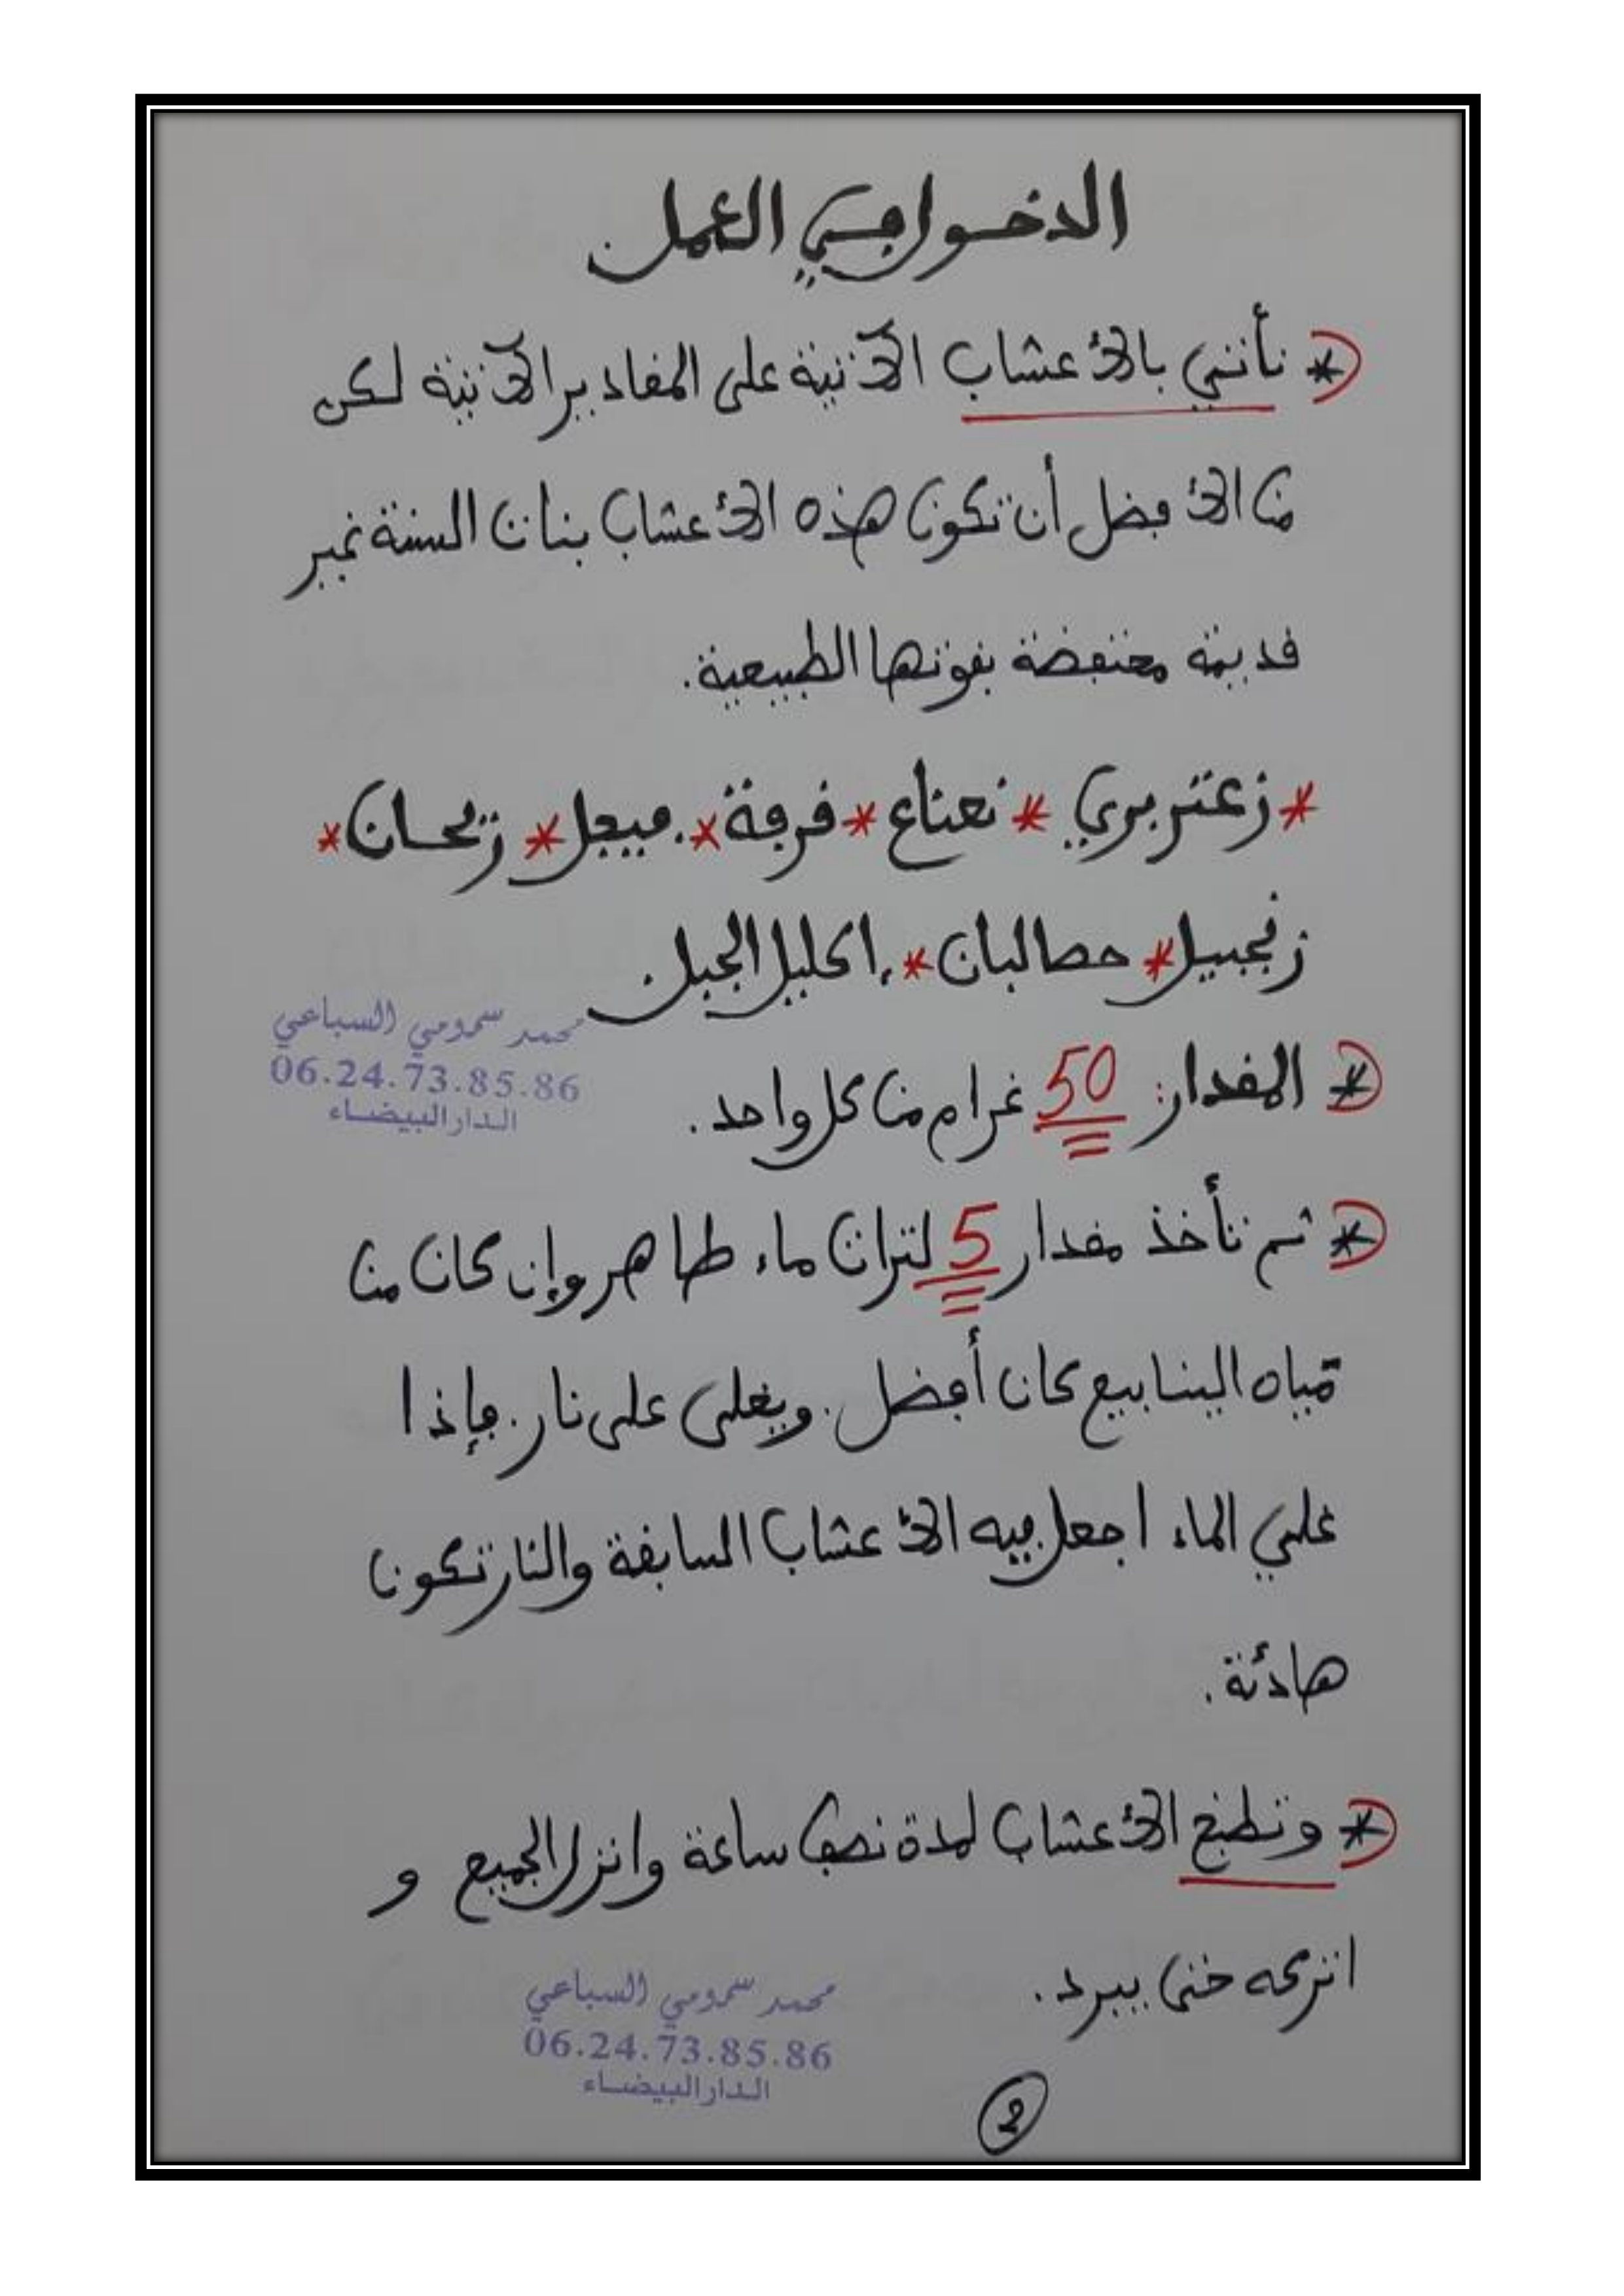 الدخول في العمل
* تأتي بالأعشاب الآتية على المقادير الآتية لكن
من الأفضل أن تكون هذه الأعشاب بنات السنة غير
قديمة محتفضة بقوتها الطبيعية.
* زعتر بري * نعناع * قرفة * فيجل * ريحان *
زنجبيل * حصالبان * إكليل الجبل.
محمد سمومي السباعي
06.24.73.85.86
الدار البيضاء
* المقدار: 50 غرام من كل واحد.
* ثم تأخذ مقدار 5 لترات ماء طاهر وإن كان من
مياه الينابيع كان أفضل. ويغلى على نار. فإذا
غلي الماء اجعل فيه الأعشاب السابقة والنار تكون
هادئة.
* وتطبخ الأعشاب لمدة نصف ساعة وانزل الجميع و
اتركه حتى يبرد.
محمد سمومي السباعي
06.24.73.85.86
الدار البيضاء
2